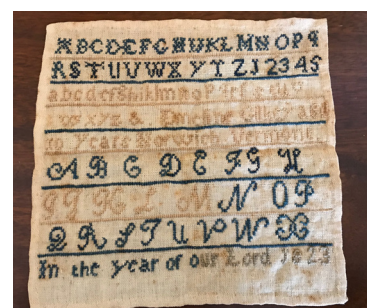 ABCDEFGHIJKLMNOPQ
RSTUVWXYZ12345
abcdefghiklmnopqrstuv
wxyz & Emeline aged
10 years Norwich Vermont
A B C D E F G H
I J K L M N O P
Q R S T U V W X
In the year of our Lord 1823